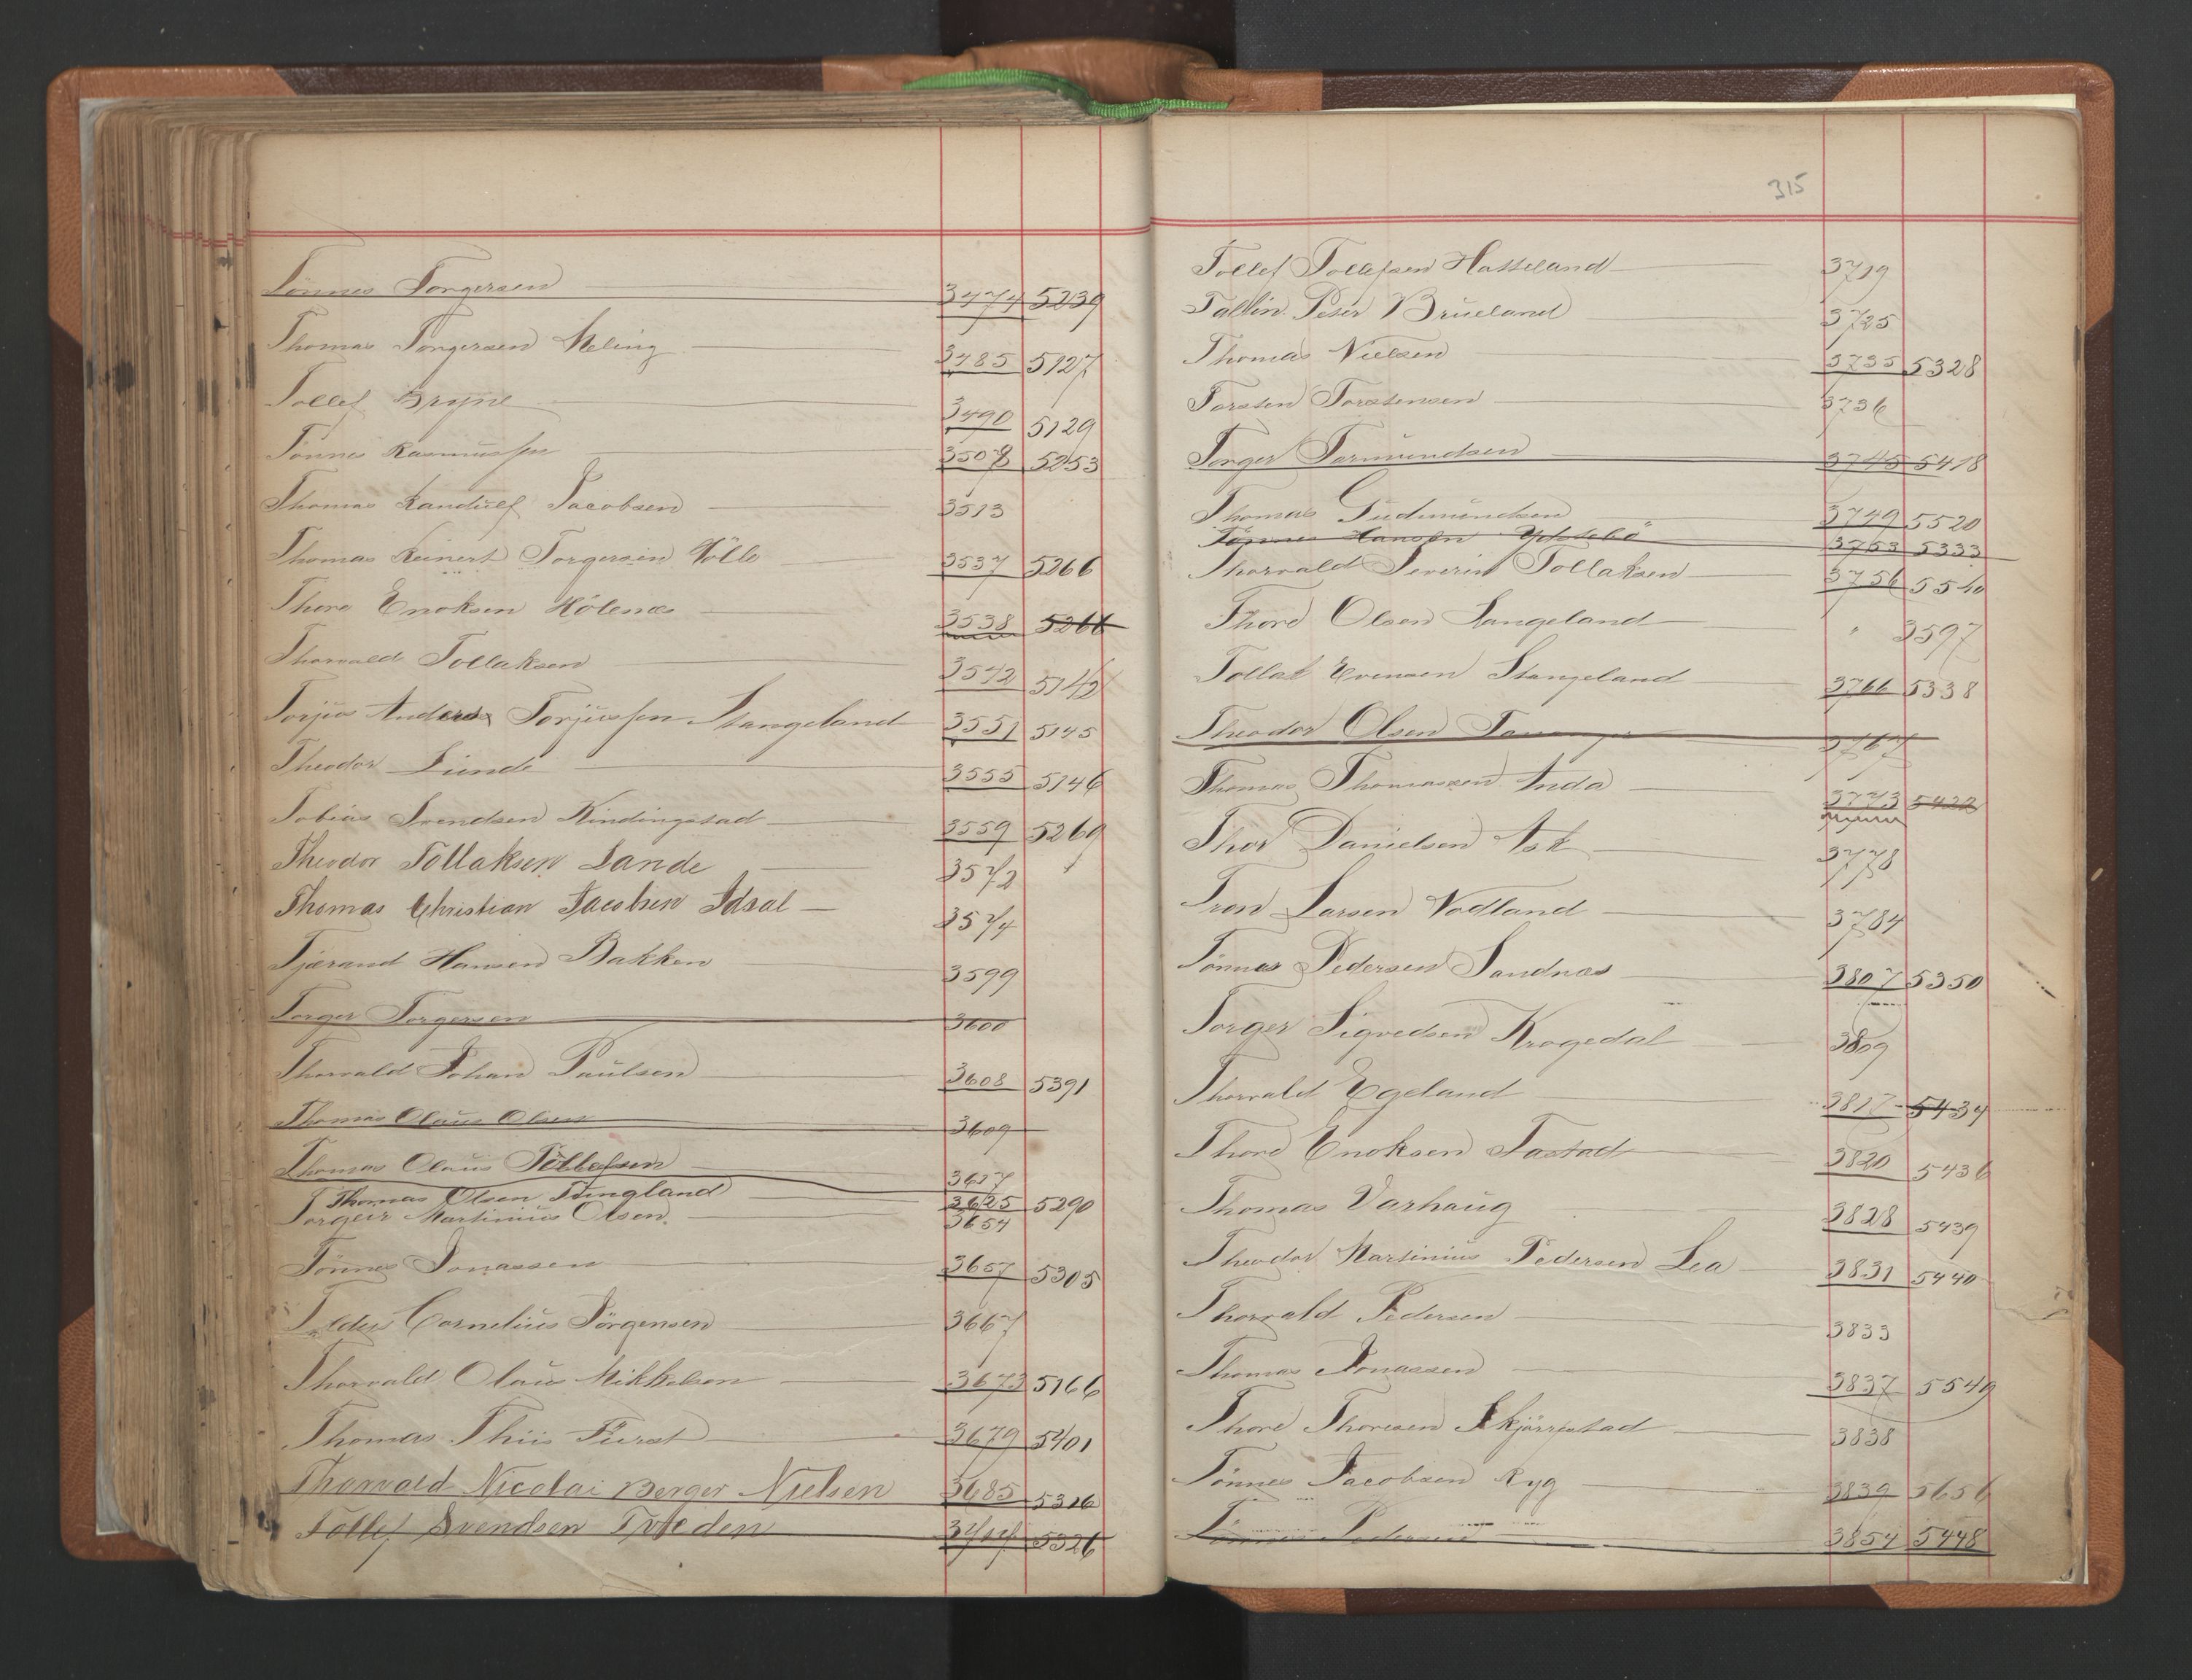 Tønnes Torgersen 3474 5239
Thomas Torgersen Meling 3485 5127
Tollef Bryne 3490 5129
Tønnes Rasmussen 3508 5253
Thomas Randulf Jacobsen 3513
Thomas Reinert Torgersen Kolle 3537 5266
Thore Enoksen Hølenæs 3538 5266
Thorvald Tollaksen 3542 5142
Torjus Anders Torjussen Stangeland 3551 5145
Theodor Lunde 3555 5146
Tobias Svendsen Kindingstad 3559 5269
Theodor Tollaksen Lande 3572
Thomas Christian Jacobsen Idsal 3574
Tjærand Hansen Bakken 3599
Torger Torgersen 3600
Thorvald Johan Paulsen 3608 5391
Thomas Olaus Olsen 3609
Thomas Olaus Tollefsen 3617
Thomas Olsen Tengland 3625 5290
Torgeir Martinius Olsen 3654
Tønnes Jonassen 3657 5305
Cornelius Jörgensen 3667
Thorvald Olaus Mikkelsen 3673 5166
Thomas Thiis Fürst 3679 5401
Thorvald Nicolai Berger Nielsen 3685 5316
Tollef Svendsen Tveden 3707 5326
315
Tollef Tollefsen Hatteland 3719
Tallin Peter Brueland 3725
Thomas Nielsen 3735 5328
Torsten Torstensen 3736
Torger Tormundsen 3745 5418
Thomas Gudmundsen 3749 5520
Tønnes Hansen Ydstebö 3753 5333
Thorvald Severin Tollaksen 3756 5540
Thore Olsen Stangeland " 3597
Tollak Evensen Stangeland 3766 5338
Theodor Olsen 3767
Thomas Thomassen Anda 3773 5422
Thor Danielsen Ask 3778
Tron Larsen Vodland 3784
Tønnes Pedersen Sandnæs 3807 5350
Torger Sigvedsen Krogedal 3809
Thorvald Egeland 3817 5434
Thore Enoksen Tastad 3820 5436
Thomas Varhaug 3828 5439
Theodor Martinius Pedersen Lea 3831 5440
Thorvald Pedersen 3833
Thomas Jonassen 3837 5549
Thore Thoresen Skjörrestad 3838
Tønnes Jacobsen Ryg 3839 5656
Tønnes Pedersen 3854 5448